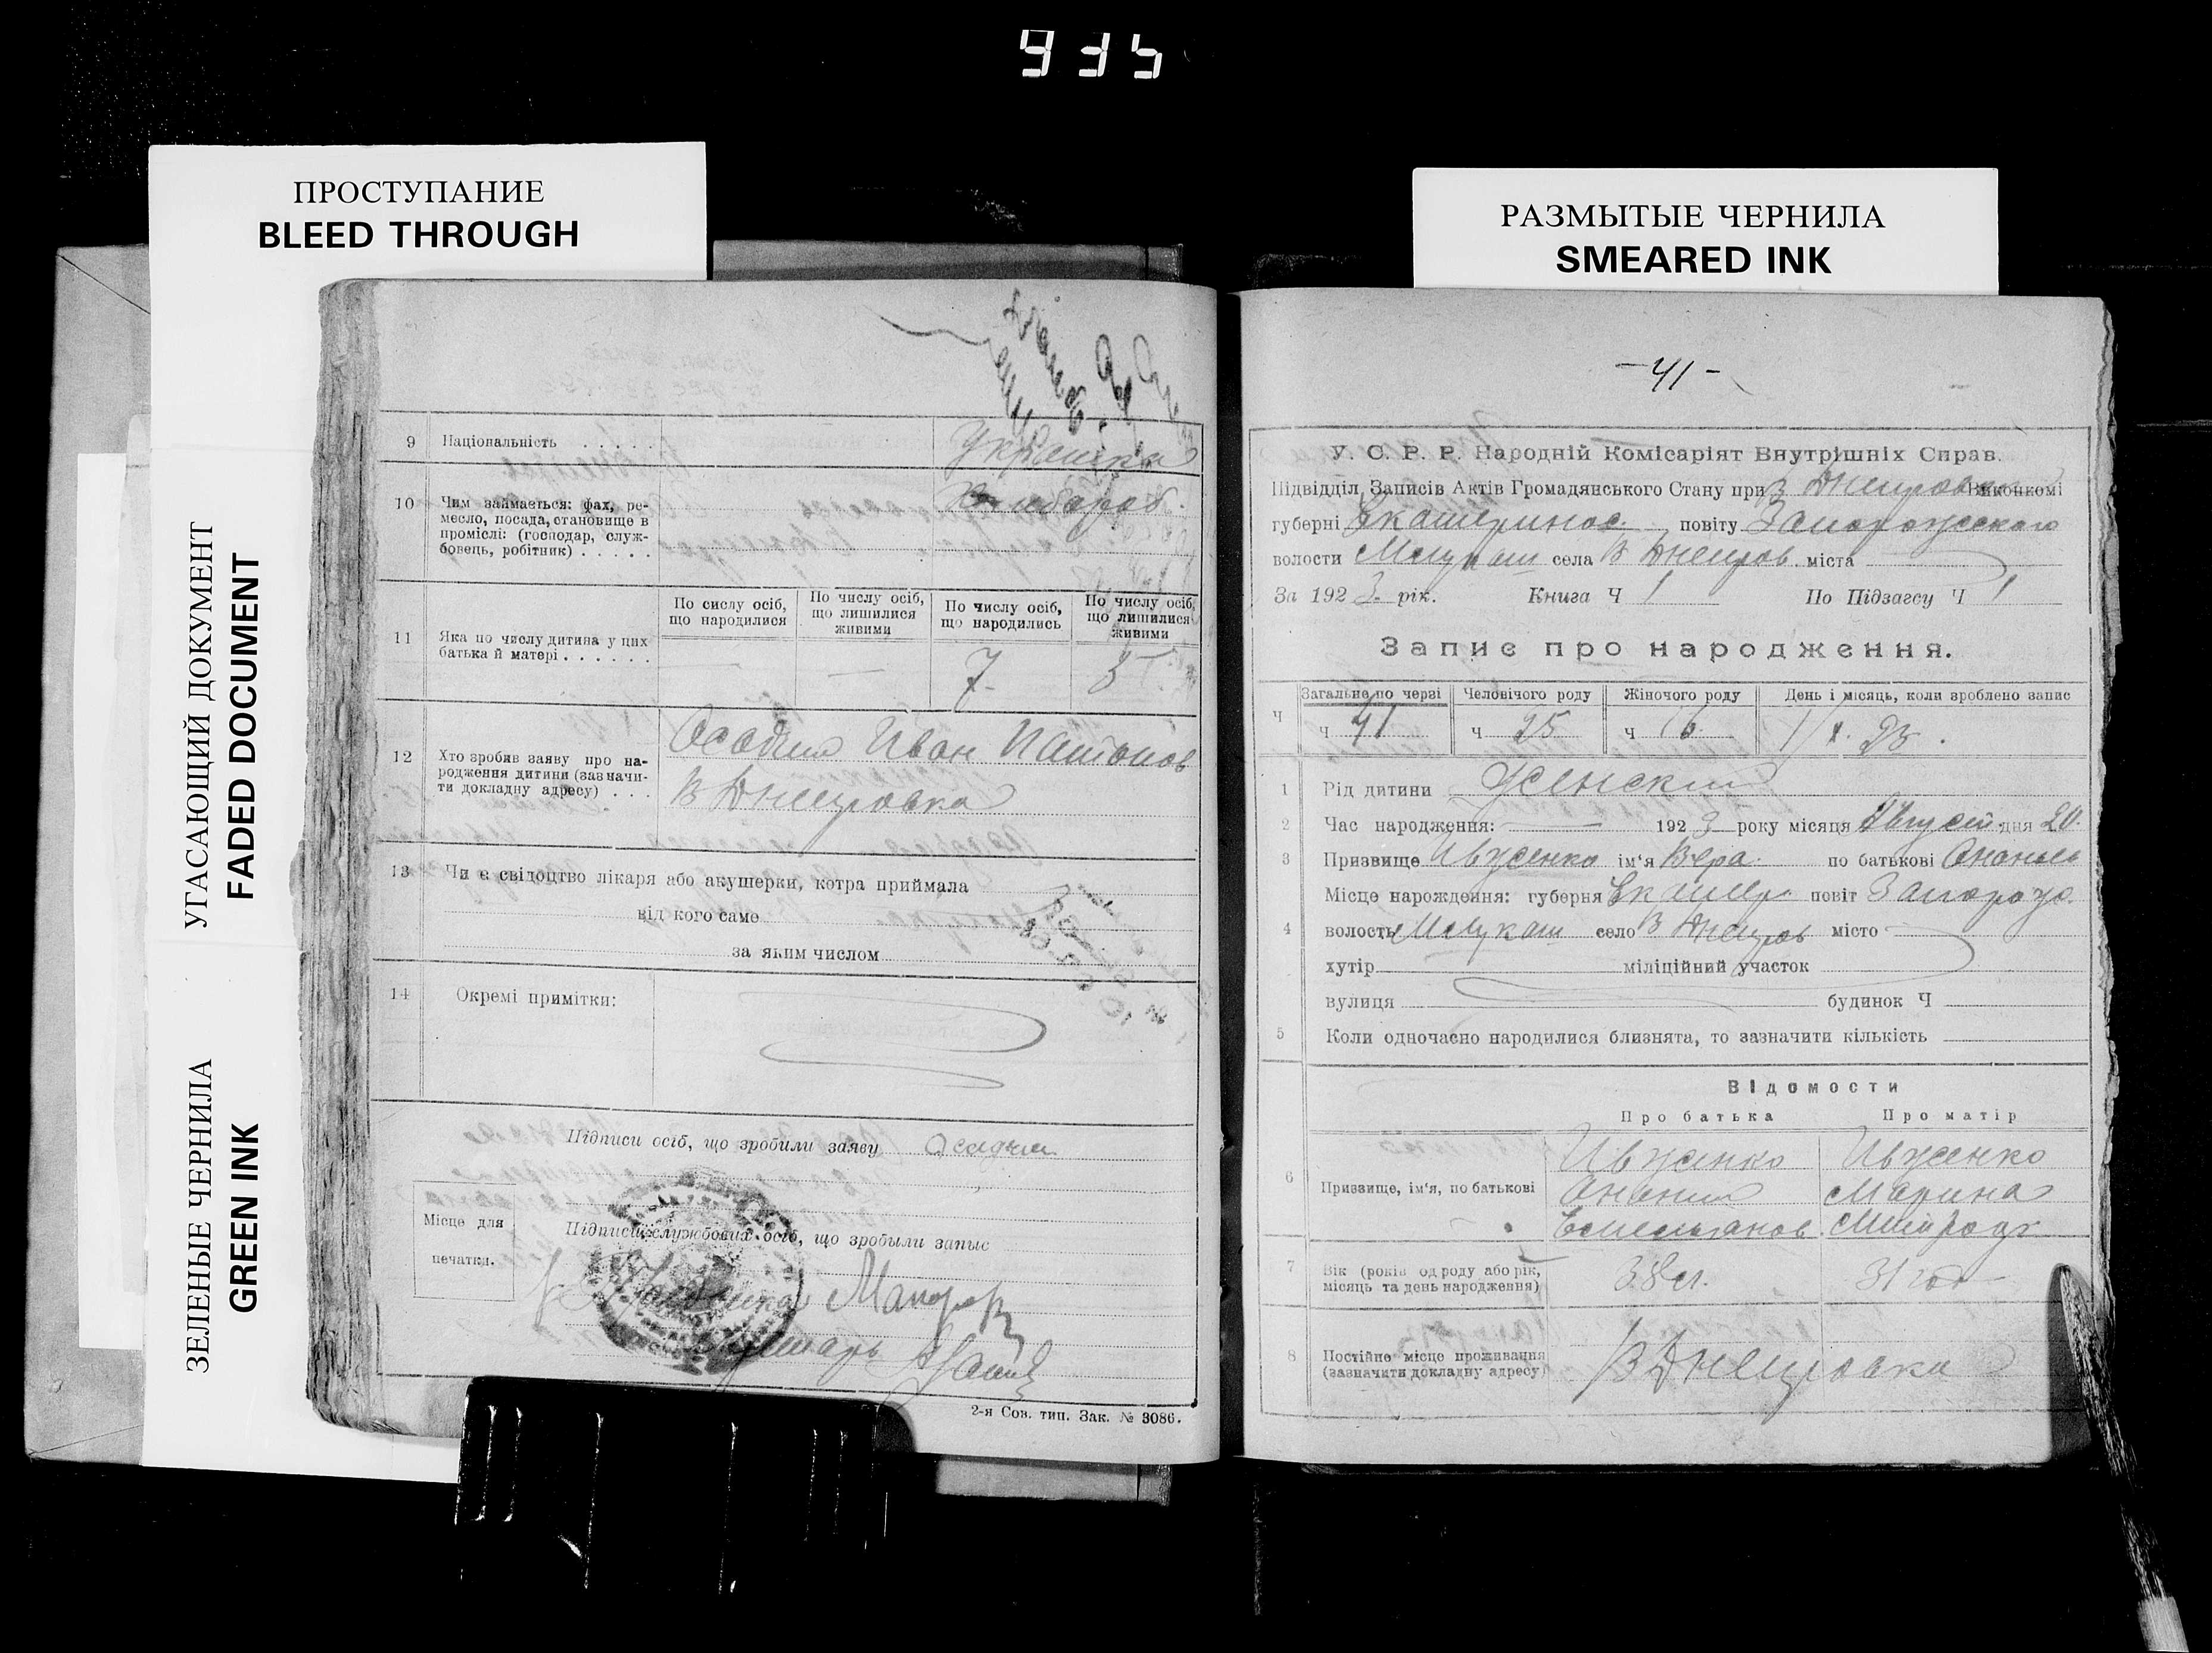 935
ПРОСТУПАНИЕ
BLEED THROUGH
УГАСАЮЩИЙ ДОКУМЕНТ
FADED DOCUMENT
ЗЕЛЕНЫЕ ЧЕРНИЛА
GREEN INK
РАЗМЫТЫЕ ЧЕРНИЛА
SMEARED INK
9 Національність . . . . .
Украинка
10 Чим займається: фах, ре-
месло, посада, становище в
промислі: (господар, служ-
бовець, робітник) . . . . .
11 Яка по числу дитина у цих
батька й матері . . . . . .
По сислу осіб,
що народилися
По числу осіб,
що лишилися
живими
По числу осіб,
що народились
По числу осіб,
що лишилися
живими
— — 7 5
12 Хто зробив заяву про на-
родження дитини (зазначи-
ти докладну адресу) . . .
Осадчий Иван
В Днепровка
13 Чи є свідоцтво лікаря або акушерки, котра приймала
від кого саме
за яким числом
14 Окремі примітки:
Підписи осіб, що зробили заяву Осадчий
Місце для
печатки.
Підписи службових осіб, що зробыли запыс
2-я Сов. тип. Зак. № 3086.
—41—
У. С. Р. Р. Народній Комісаріят Внутрішніх Справ.
Підвідділ Записів Актів Громадянського Стану при В Днепровском Виконкомі
губерні Екатеринос повіту Запорожского
волости села В Днепров. міста
За 1923 рік. Книга Ч 1 По Підзагсу Ч 1
Запис про народження.
Ч Загальне по черзі Человічого роду Жіночого роду День і місяць, коли зроблено запис
ч 41 ч 25 ч 16 1/X 23.
1 Рід дитини Женский
2 Час народження: — 1923 року місяця Август дня 20.
3 Призвище Ивженко ім'я Вера по батькові Ананьев
4 Місце народження: губерня Екатер повіт Запорож.
волость село В Днепров місто
хутір міліційний участок
вулиця будинок Ч
5 Коли одночасно народилися близнята, то зазначити кількість
Відомости
Про батька Про матір
6 Призвище, ім'я, по батькові
Ивженко Ивженко
Ананий Марина
Емельянов Митроф
7 Вік (років од роду або рік,
місяць та день народження)
38 л. 31 год
8 Постійне місце проживання
(зазначити докладну адресу)
В Днепровка